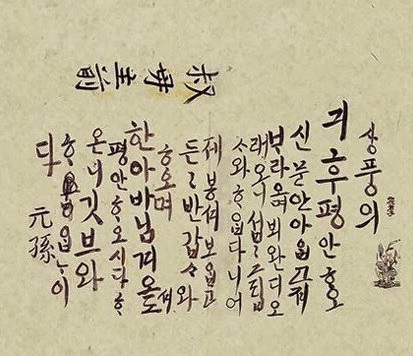 叔母主前
상풍의
긔후 평안ᄒᆞ오
신 문안 아ᄋᆞᆸ고져
ᄇᆞ라오며 뵈완디 오
래오니 섭〻 그립
ᄉᆞ와 ᄒᆞᄋᆞᆸ다니 어
제 봉셔 보ᄋᆞᆸ고
든〻 반갑ᄉᆞ와
ᄒᆞ오며
한아바님 겨오셔도
평안ᄒᆞ오시다 ᄒᆞ
온니 깃브와
ᄒᆞᄋᆞᆸᄂᆞ이
다
元孫